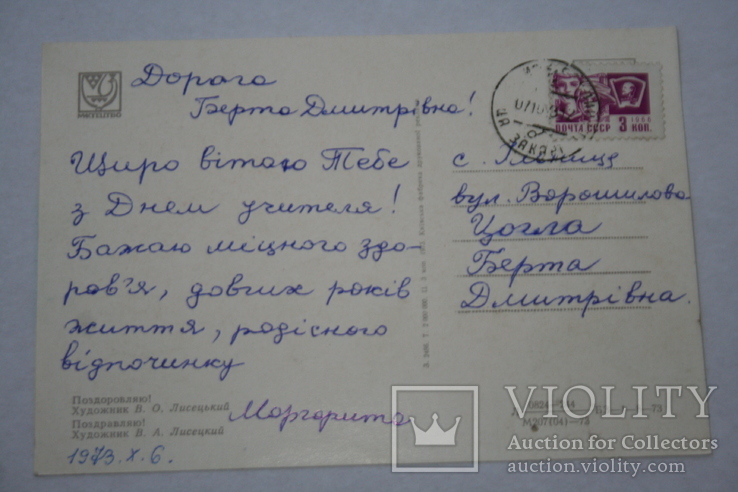 МИСТЕЦТВО
Дорога
Берта Дмитрівна!
Щиро вітаю Тебе
з Днем учителя!
Бажаю міцного здо-
ров'я, довгих років
життя, радісного
відпочинку
Маргарита
1973.X.6.
Поздоровляю!
Художник В. О. Лисецький
Поздравляю!
Художник В. А. Лисецкий
ПОЧТА СССР 3 КОП.
1966
с.
вул. Ворошилова
Цогла
Берта
Дмитрівна.
М207(04)—73
VIOLITY
Auction for Collectors
auction.violity.com